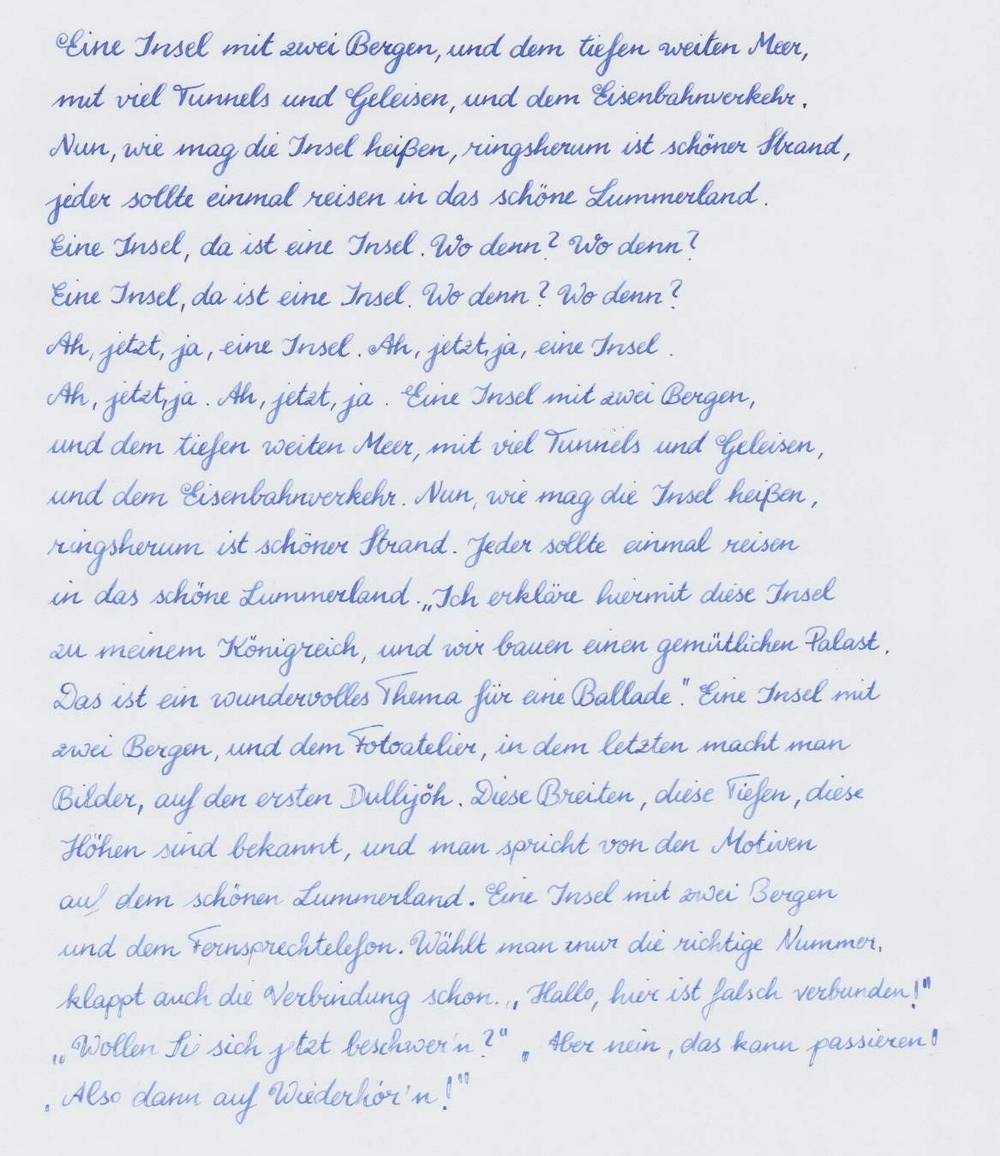 Eine Insel mit zwei Bergen, und dem tiefen weiten Meer,
mit viel Tunnels und Geleisen, und dem Eisenbahnverkehr.
Nun, wie mag die Insel heißen, ringsherum ist schöner Strand,
jeder sollte einmal reisen in das schöne Lummerland.
Eine Insel, da ist eine Insel. Wo denn? Wo denn?
Eine Insel, da ist eine Insel. Wo denn? Wo denn?
Ah, jetzt, ja, eine Insel. Ah, jetzt, ja, eine Insel.
Ah, jetzt, ja. Ah, jetzt, ja. Eine Insel mit zwei Bergen,
und dem tiefen weiten Meer, mit viel Tunnels und Geleisen,
und dem Eisenbahnverkehr. Nun, wie mag die Insel heißen,
ringsherum ist schöner Strand. Jeder sollte einmal reisen
in das schöne Lummerland. „Ich erkläre hiermit diese Insel
zu meinem Königreich, und wir bauen einen gemütlichen Palast.
Das ist ein wundervolles Thema für eine Ballade". Eine Insel mit
zwei Bergen, und dem Fotoatelier, in dem letzten macht man
Bilder, auf den ersten Dullijöh. Diese Breiten, diese Tiefen, diese
Höhen sind bekannt, und man spricht von den Motiven
auf dem schönen Lummerland. Eine Insel mit zwei Bergen
und dem Fernsprechtelefon. Wählt man nur die richtige Nummer,
klappt auch die Verbindung schon. „Hallo, hier ist falsch verbunden!"
„Wollen Sie sich jetzt beschwer'n?" „Aber nein, das kann passieren!
„Also dann auf Wiederhör'n!"